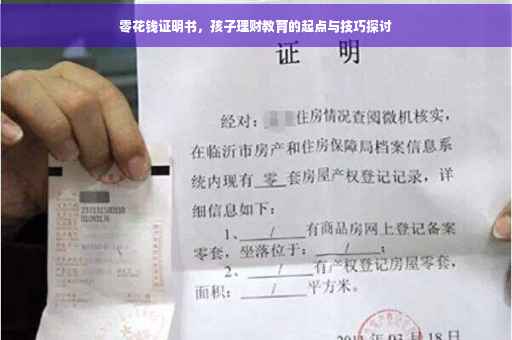 零花钱证明书，孩子理财教育的起点与技巧探讨
证 明
经对：住房情况查阅微机核实，
在临沂市房产和住房保障局档案信息系
统内现有 零 套房屋产权登记记录，详
细信息如下：
1、 / 有商品房网上登记备案
零套，坐落位于： / ；
2、 / 有产权登记房屋零套，
面积： / 平方米。